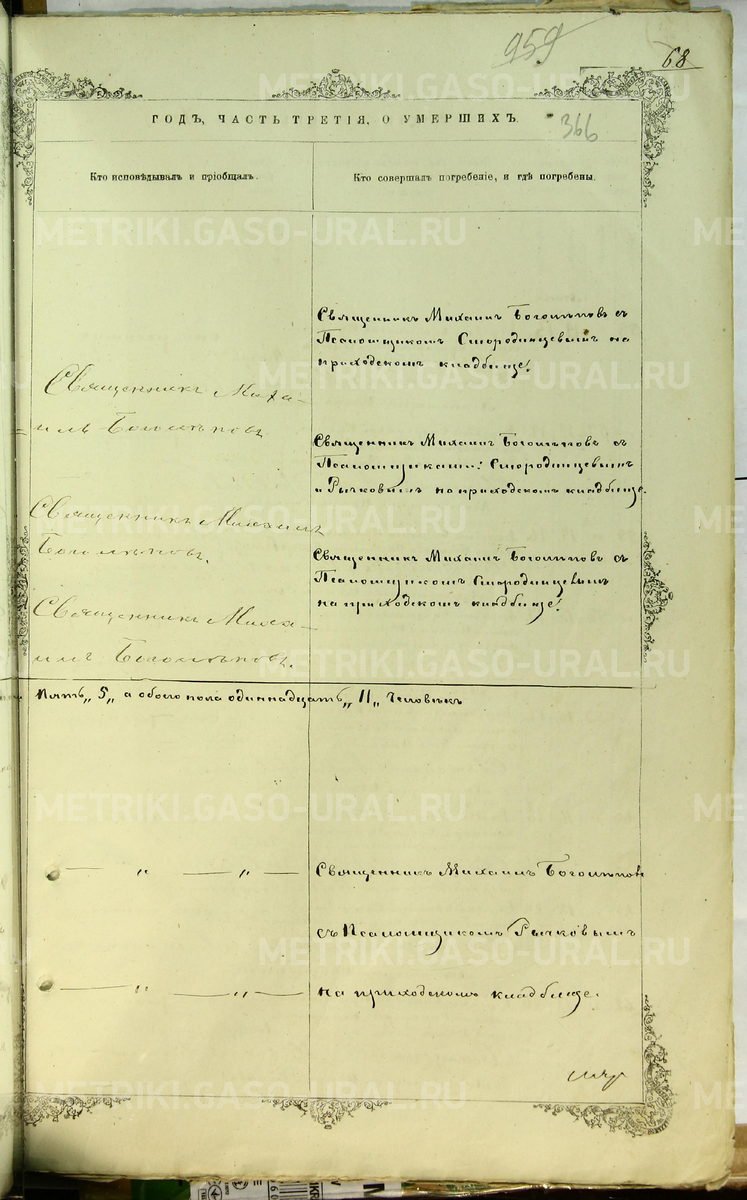 959
68
ГОДЪ, ЧАСТЬ ТРЕТІЯ, О УМЕРШИХЪ.
366
Кто исповѣдывалъ и пріобщалъ.
Кто совершалъ погребеніе, и гдѣ погребены.
Священникъ Михаилъ Боголѣповъ съ
Псаломщикомъ Смородинцевымъ на
приходскомъ кладбищѣ.
Священникъ Миха-
илъ Боголѣповъ
Священникъ Михаилъ Боголѣповъ съ
Псаломщиками: Смородинцевымъ
и Рычковымъ на приходскомъ кладбищѣ.
Священникъ Михаилъ
Боголѣповъ.
Священникъ Михаилъ Боголѣповъ съ
Псаломщикомъ Смородинцевымъ
на приходскомъ кладбищѣ.
Священникъ Миха-
илъ Боголѣповъ.
Пять „5„ а обоего пола одиннадцать „11„ человѣкъ
— „ — „ —
Священникъ Михаилъ Боголѣповъ
съ Псаломщикомъ Рычковымъ
— „ — „ —
на приходскомъ кладбищѣ.
METRIKI.GASO-URAL.RU